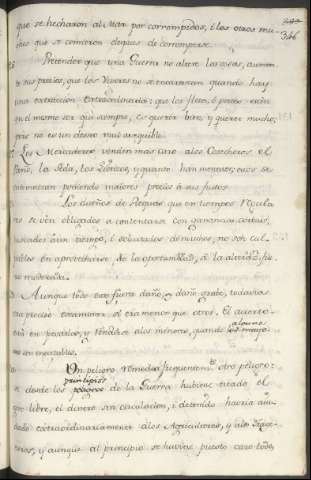 que se hecharon al Mar por corrompidos, i los otros mu-
chos que se comieron despues de corromperse.
346
Pretender que una Guerra no altere las cosas, aumen-
te sus precios, que los Viveres no se encarezcan quando hay
una extraccion extraordinaria; que los fletes, i portes esten
en el mismo ser que siempre, es querér bien, y querér mucho;
pero no es un deseo mui asequible.
Los Mercaderes venden mas caro a los Cosecheros el
Paño, la Seda, los Lienzos, y quando han menester, estos se
indemnizan poniendo maiores precios á sus frutos.
Los dueños de Requas, que en tiempos regula-
res se ven obligados a contentarse con ganancias cortas,
al mismo tiempo, i solicitarlos de muchos, no son cul-
pables en aprovecharse de la oportunidad, si la alteracion fue
moderada.
Aunque todo esto fuera daño, y daño grabe, todavia
era preciso examinar si era menor que otros. El acierto
está en pesarlos, y tenderse a los menores, quando alguno
los mayo-
res son inevitables.
Un peligro remedia frequentemte. otro peligro:
si desde los principios de la Guerra hubiese tirado el
libre, el dinero sin circulacion, i detenido haria aiu-
dado extraordinariamente a los Agricultores, y a los Trage-
neros, y aunque al principio se huviese puesto caro todo,